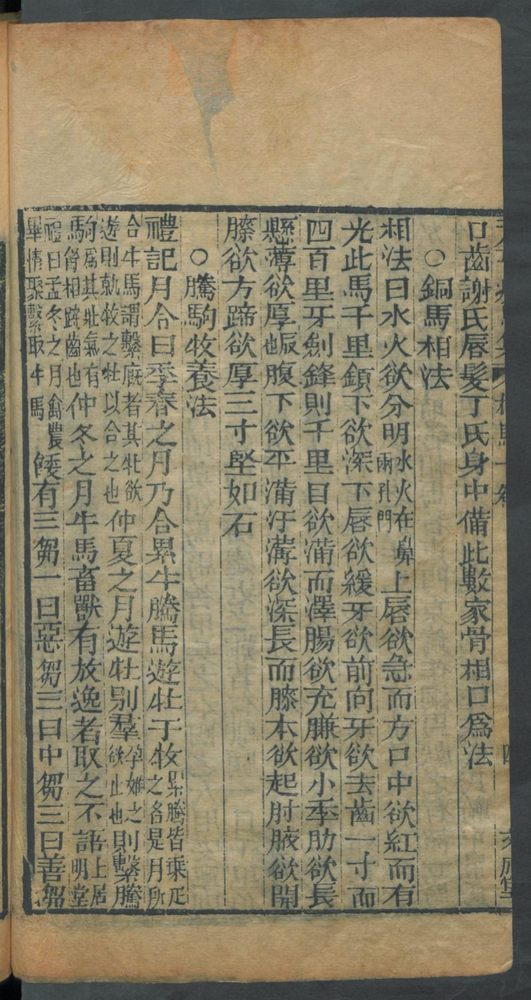 口齒謝氏唇髮丁氏身中備此數家骨相口爲法
○銅馬相法
相法曰水火欲分明水火在鼻兩孔門上唇欲急而方口中欲紅而有
光此馬千里頷下欲深下唇欲緩牙欲前向牙欲去齒一寸而
四百里牙劍鋒則千里目欲滿而澤腸欲充膁欲小季肋欲長
懸薄欲厚股也腹下欲平滿汗溝欲深長而膝本欲起肘腋欲開
膝欲方蹄欲厚三寸堅如石
○騰駒牧養法
禮記月令曰季春之月乃合累牛騰馬遊牡于牧累騰皆乘疋之名是月所
合牛馬謂繫廐者其牝欲遊則就牧之牡以合之也仲夏之月遊牡别羣孕妊之欲止也則繫騰
駒爲其牡氣有馬骨相蹄齒也仲冬之月牛馬畜獸有放逸者取之不詰上居明堂
禮曰孟冬之月命農畢積聚繫收牛馬餧有三芻一曰惡芻三曰中芻三曰善芻